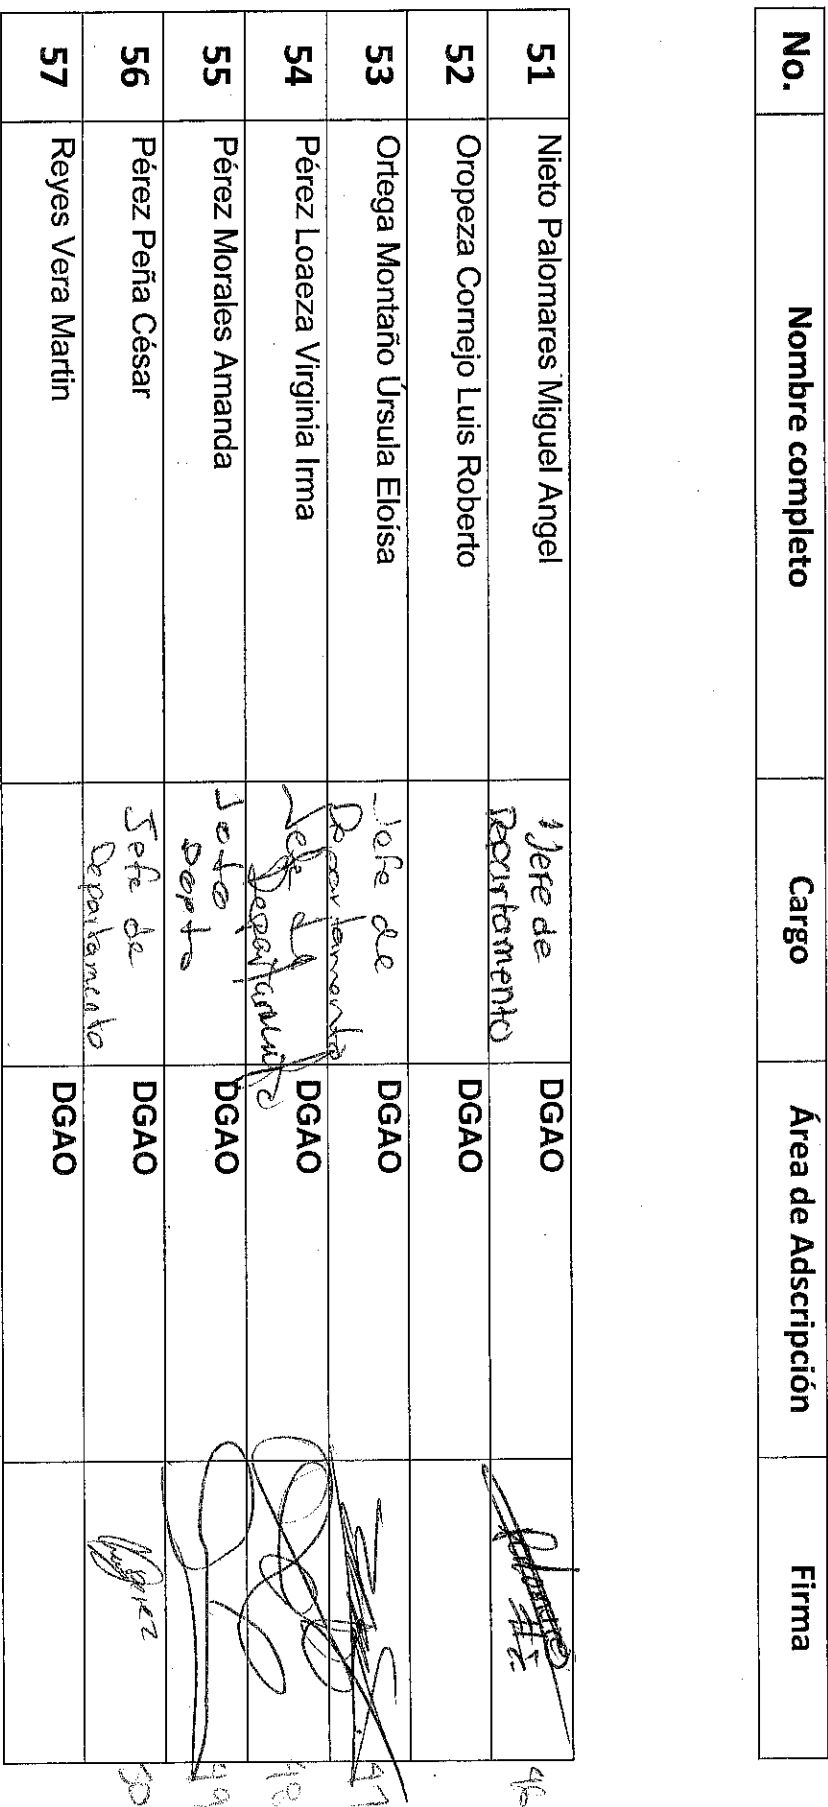 No. Nombre completo Cargo Área de Adscripción Firma
51 Nieto Palomares Miguel Angel Jefe de Departamento DGAO 46
52 Oropeza Cornejo Luis Roberto DGAO
53 Ortega Montaño Úrsula Eloísa Jefe de Departamento DGAO 47
54 Pérez Loaeza Virginia Irma Jefe de Departamento DGAO 48
55 Pérez Morales Amanda Depto DGAO 49
56 Pérez Peña César Jefe de Departamento DGAO 50
57 Reyes Vera Martin DGAO